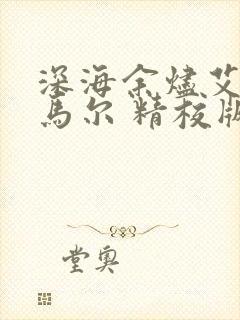 深海余燼艾
馬尔 精校版
堂奥